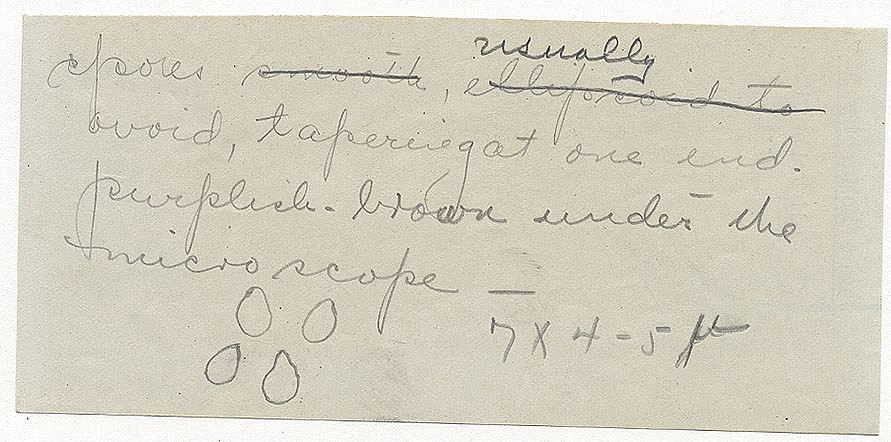 usually
spores smooth, ellipsoid to
ovoid, tapering at one end.
purplish-brown under the
microscope —
7 X 4-5 µ